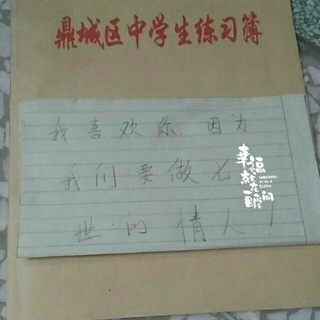 鼎城区中学生练习簿
我喜欢你 因为
我们要做七
世的情人!
幸福
就在
一瞬间